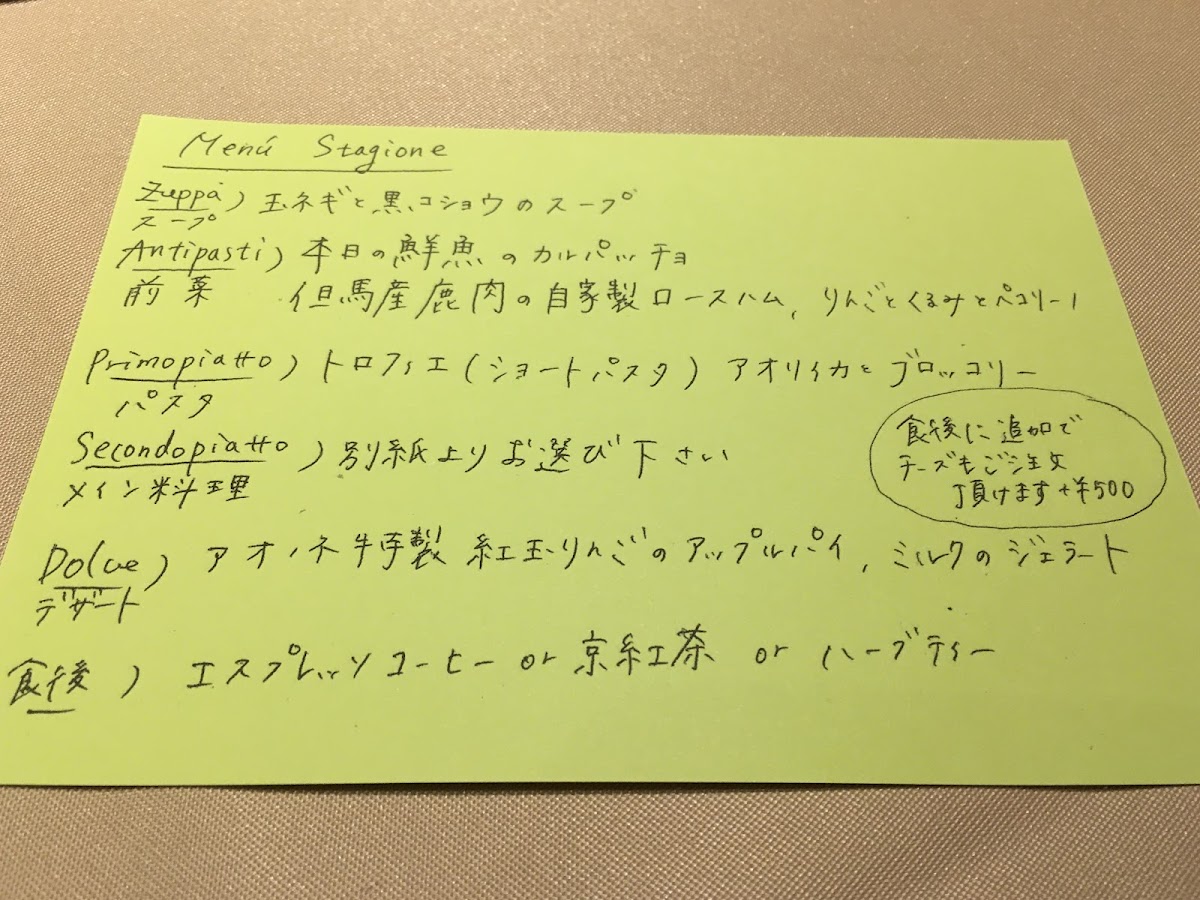 Menú Stagione
Zuppa) 玉ネギと黒コショウのスープ
スープ
Antipasti) 本日の鮮魚のカルパッチョ
前菜 但馬産鹿肉の自家製ロースハム、りんごとくるみとペコリーノ
Primopiatto) トロフィエ(ショートパスタ) アオリイカとブロッコリー
パスタ
Secondopiatto) 別紙よりお選び下さい
メイン料理
食後に追加で
チーズもご注文
頂けます+¥500
Dolce) アオノネ特製 紅玉りんごのアップルパイ、ミルクのジェラート
デザート
食後) エスプレッソコーヒー or 京紅茶 or ハーブティー